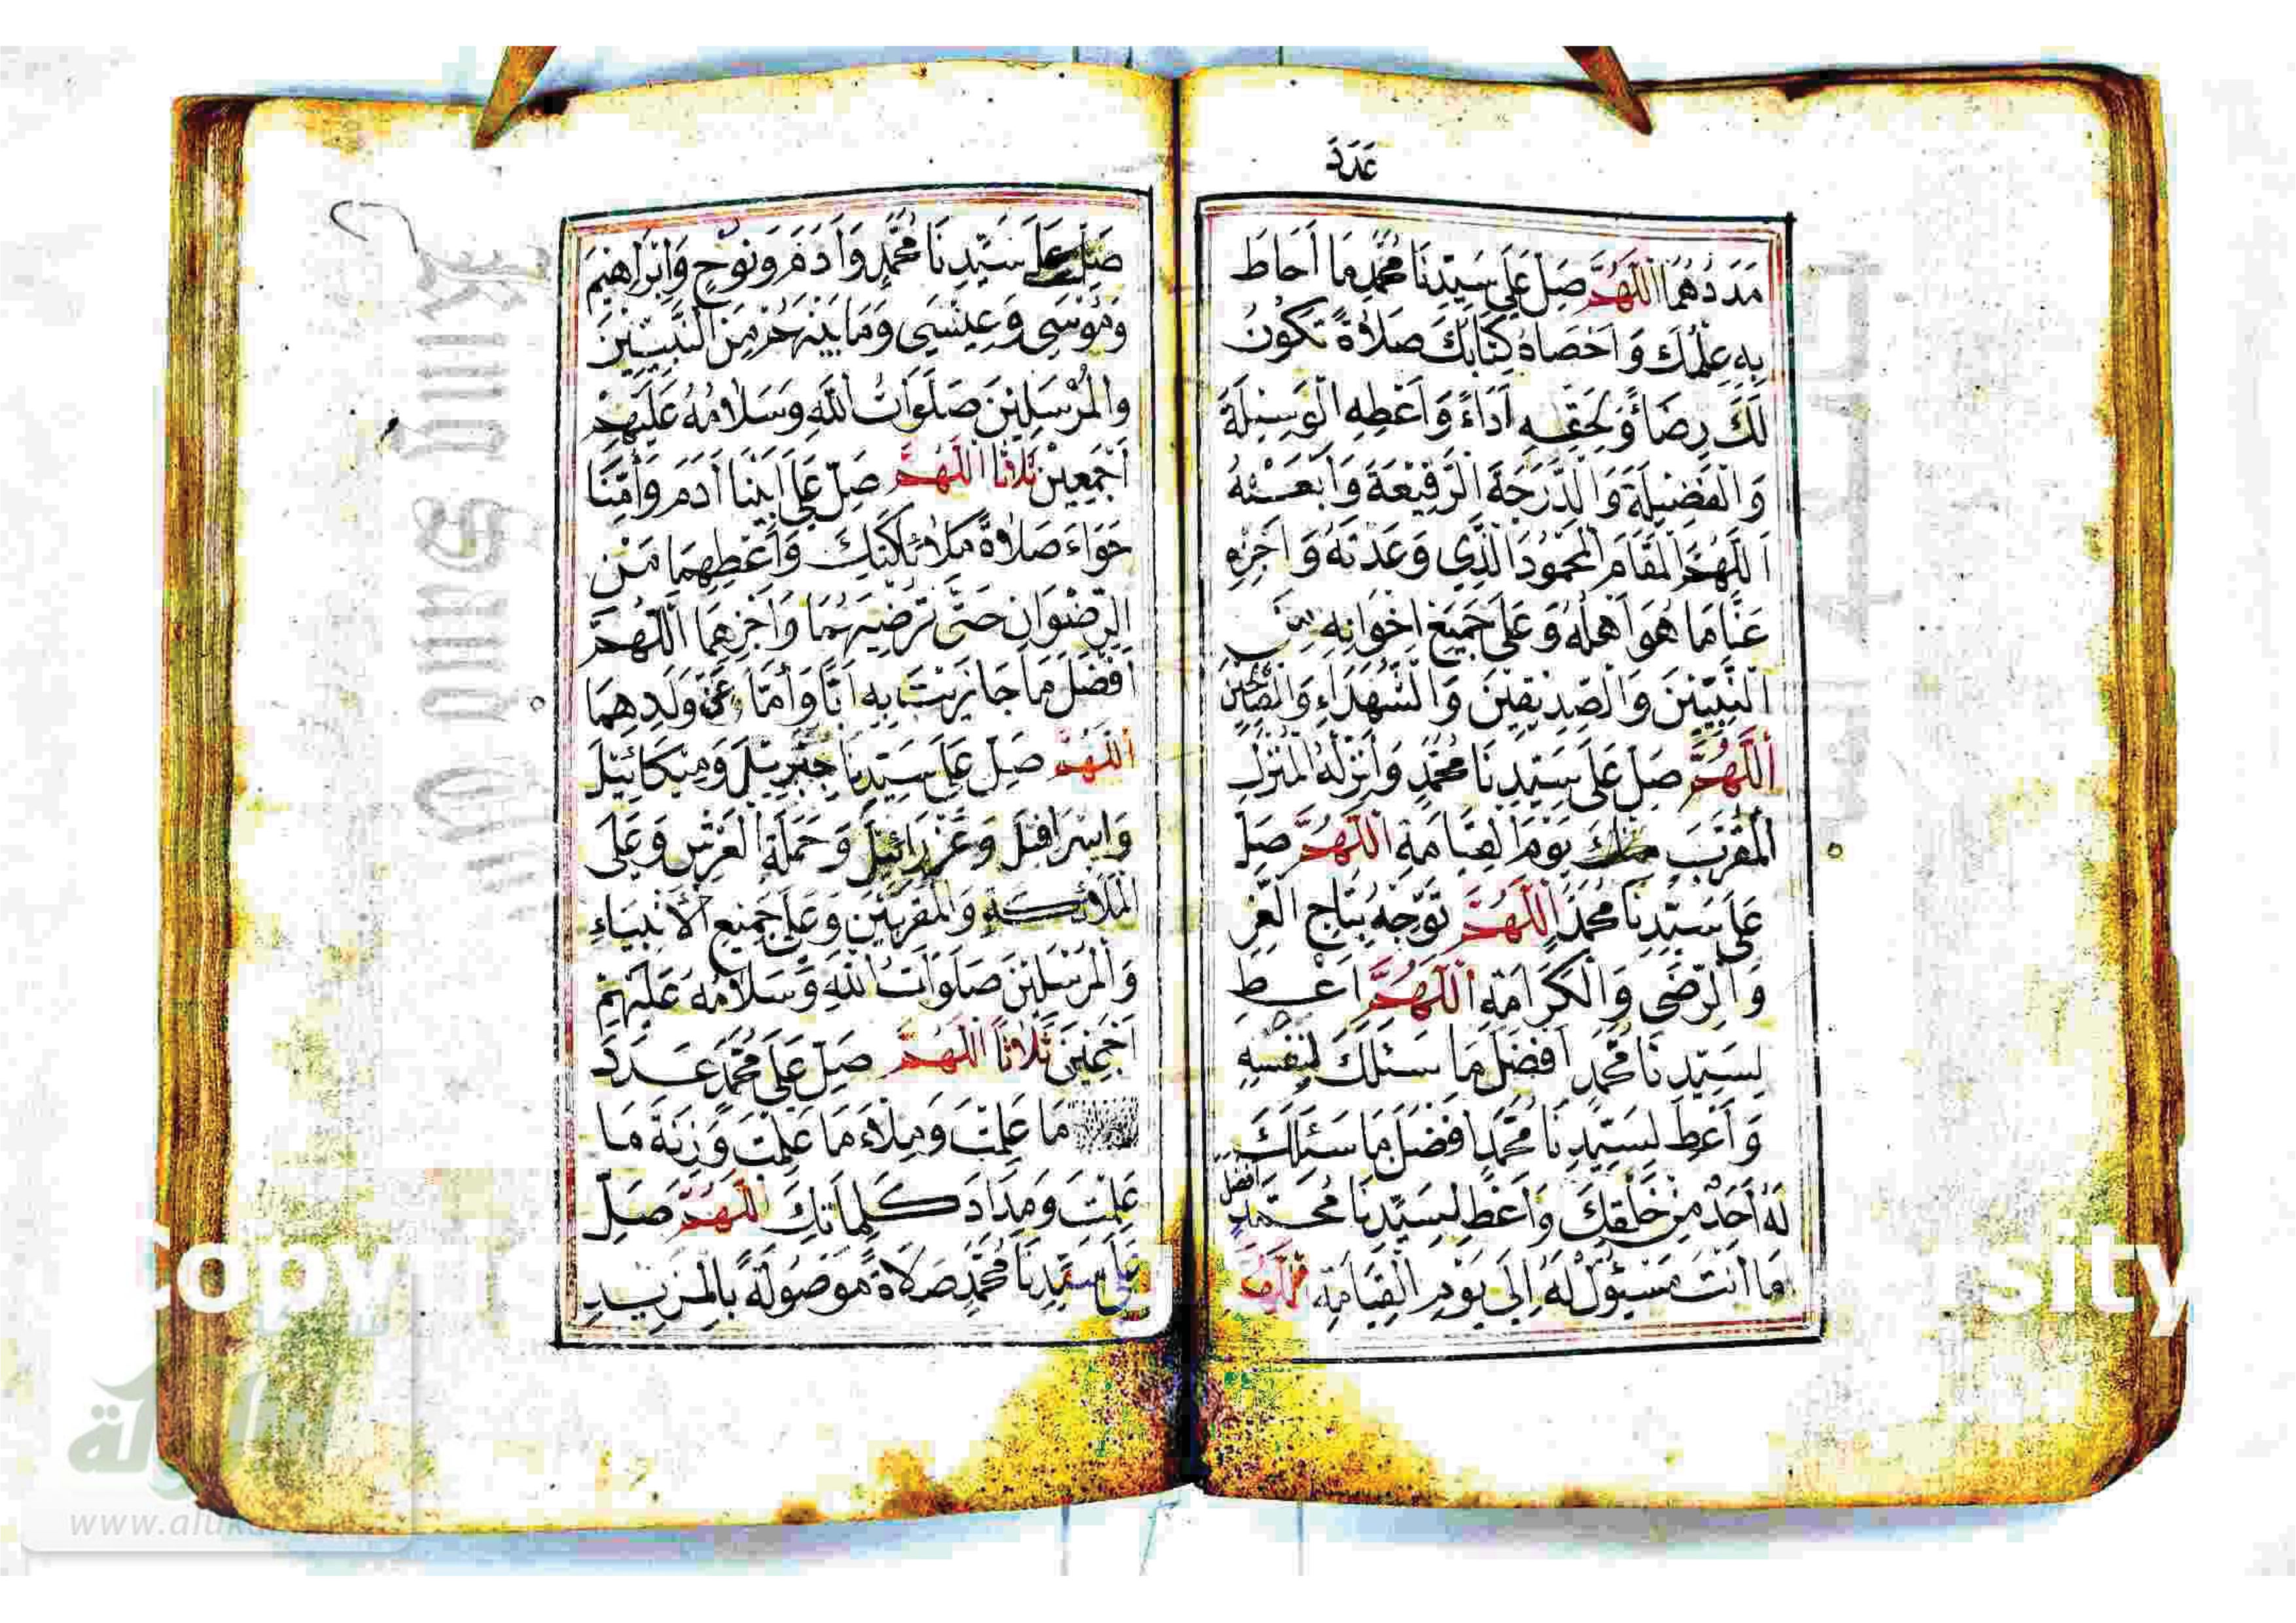 عَدَدَ
مَدَدُهُمَا اَللّٰهُمَّ صَلِّ عَلَى سَيِّدِنَا مُحَمَّدٍ مَا أَحَاطَ
بِهِ عِلْمُكَ وَاَحْصَاهُ كِتَابُكَ صَلَاةً تَكُونُ
لَكَ رِضَاءً وَلِحَقِّهِ اَدَاءً وَاَعْطِهِ الْوَسِيلَةَ
وَالْفَضِيلَةَ وَالدَّرَجَةَ الرَّفِيعَةَ وَابْعَثْهُ
اَللّٰهُمَّ الْمَقَامَ الْمَحْمُودَ الَّذِي وَعَدْتَهُ وَاَجْزِهِ
عَنَّا مَا هُوَ اَهْلُهُ وَعَلَى جَمِيعِ اِخْوَانِهِ مِنَ
النَّبِيِّينَ وَالصِّدِّيقِينَ وَالشُّهَدَاءِ وَالصَّالِحِينَ
اَللّٰهُمَّ صَلِّ عَلَى سَيِّدِنَا مُحَمَّدٍ وَاَنْزِلْهُ الْمُنْزَلَ
الْمُقَرَّبَ مِنْكَ يَوْمَ الْقِيَامَةِ اَللّٰهُمَّ صَلِّ
عَلَى سَيِّدِنَا مُحَمَّدٍ اَللّٰهُمَّ تَوِّجْهُ بِتَاجِ الْعِزِّ
وَالرِّضَى وَالْكَرَامَةِ اَللّٰهُمَّ اَعْطِ
لِسَيِّدِنَا مُحَمَّدٍ اَفْضَلَ مَا سَئَلَكَ لِنَفْسِهِ
وَاَعْطِ لِسَيِّدِنَا مُحَمَّدٍ اَفْضَلَ مَا سَئَلَكَ
لَهُ اَحَدٌ مِنْ خَلْقِكَ وَاَعْطِ لِسَيِّدِنَا مُحَمَّدٍ اَفْضَلَ
مَا اَنْتَ مَسْئُولٌ لَهُ اِلَى يَوْمِ الْقِيَامَةِ اَللّٰهُمَّ
صَلِّ عَلَى سَيِّدِنَا مُحَمَّدٍ وَاَدَمَ وَنُوحٍ وَاِبْرَاهِيمَ
وَمُوسَى وَعِيسَى وَمَا بَيْنَهُمْ مِنَ النَّبِيِّينَ
وَالْمُرْسَلِينَ صَلَوَاتُ اللّٰهِ وَسَلَامُهُ عَلَيْهِمْ
اَجْمَعِينَ ثَلَاثًا اَللّٰهُمَّ صَلِّ عَلَى اَبِينَا اَدَمَ وَاُمِّنَا
حَوَاءَ صَلَاةَ مَلَائِكَتِكَ وَاَعْطِهِمَا مِنَ
الرِّضْوَانِ حَتَّى تُرْضِيَهُمَا وَاَجْزِهِمَا اَللّٰهُمَّ
اَفْضَلَ مَا جَازَيْتَ بِهِ اَبًا وَاُمًّا عَنْ وَلَدِهِمَا
اَللّٰهُمَّ صَلِّ عَلَى سَيِّدِنَا جِبْرِيلَ وَمِيكَائِيلَ
وَاِسْرَافِيلَ وَعَزْرَائِيلَ وَحَمَلَةِ الْعَرْشِ وَعَلَى
الْمَلَائِكَةِ وَالْمُقَرَّبِينَ وَعَلَى جَمِيعِ الْاَنْبِيَاءِ
وَالْمُرْسَلِينَ صَلَوَاتُ اللّٰهِ وَسَلَامُهُ عَلَيْهِمْ
اَجْمَعِينَ ثَلَاثًا اَللّٰهُمَّ صَلِّ عَلَى مُحَمَّدٍ عَدَدَ
مَا عَلِمْتَ وَمِلْاءَ مَا عَلِمْتَ وَزِنَةَ مَا
عَلِمْتَ وَمِدَادَ كَلِمَاتِكَ اَللّٰهُمَّ صَلِّ
عَلَى سَيِّدِنَا مُحَمَّدٍ صَلَاةً مَوْصُولَةً بِالْمَزِيدِ
الألوكة